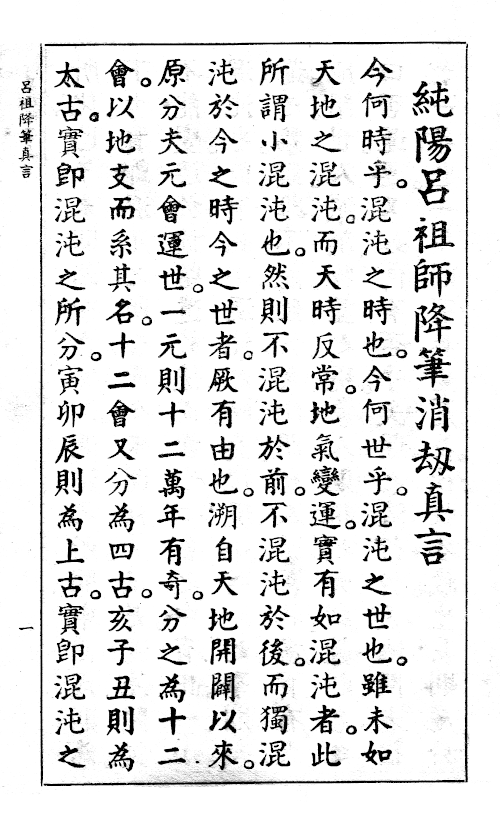 純陽呂祖師降筆消刼真言
今何時乎。混沌之時也。今何世乎。混沌之世也。雖未如
天地之混沌。而天時反常。地氣變運。實有如混沌者。此
所謂小混沌也。然則不混沌於前。不混沌於後。而獨混
沌於今之時今之世者。厥有由也。溯自天地開闢以來。
原分夫元會運世。一元則十二萬年有奇。分之為十二
會。以地支而系其名。十二會又分為四古。亥子丑則為
太古。實卽混沌之所分。寅卯辰則為上古。實卽混沌之
呂祖降筆真言
一